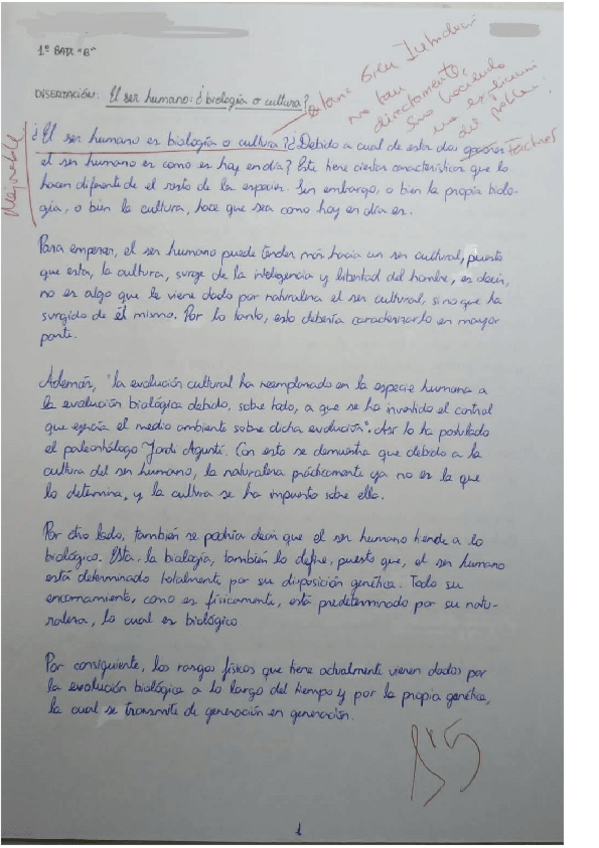 1º BATX "B"
DISERTACIÓN: El ser humano: ¿biología o cultura?
no tan
directamente,
sino haciendo
una
del problema.
Mejorable
¿El ser humano es biología o cultura? ¿Debido a cual de estas dos opciones tachar
el ser humano es como es hoy en día? Este tiene ciertas características que lo
hacen diferente de el resto de la especies. Sin embargo, o bien la propia biolo-
gía, o bien la cultura, hace que sea como hoy en día es.
Para empezar, el ser humano puede tender más hacia un ser cultural, puesto
que esta, la cultura, surge de la inteligencia y libertad del hombre, es decir,
no es algo que le viene dado por naturaleza el ser cultural, sino que ha
surgido de él mismo. Por lo tanto, esto debería caracterizarlo en mayor
parte.
Además, "la evolución cultural ha reemplazado en la especie humana a
la evolución biológica debido, sobre todo, a que se ha invertido el control
que ejercía el medio ambiente sobre dicha evolución". Así lo ha postulado
el paleontólogo Jordi Agustí. Con esto se demuestra que debido a la
cultura del ser humano, la naturaleza prácticamente ya no es la que
lo determina, y la cultura se ha impuesto sobre ella.
Por otro lado, también se podría decir que el ser humano tiende a lo
biológico. Esta, la biología, también lo define, puesto que, el ser humano
está determinado totalmente por su disposición genética. Todo su
encarnamiento, como es físicamente, está predeterminado por su natu-
raleza, lo cual es biológico
Por consiguiente, los rasgos físicos que tiene actualmente vienen dados por
la evolución biológica a lo largo del tiempo y por la propia genética,
la cual se transmite de generación en generación.
1